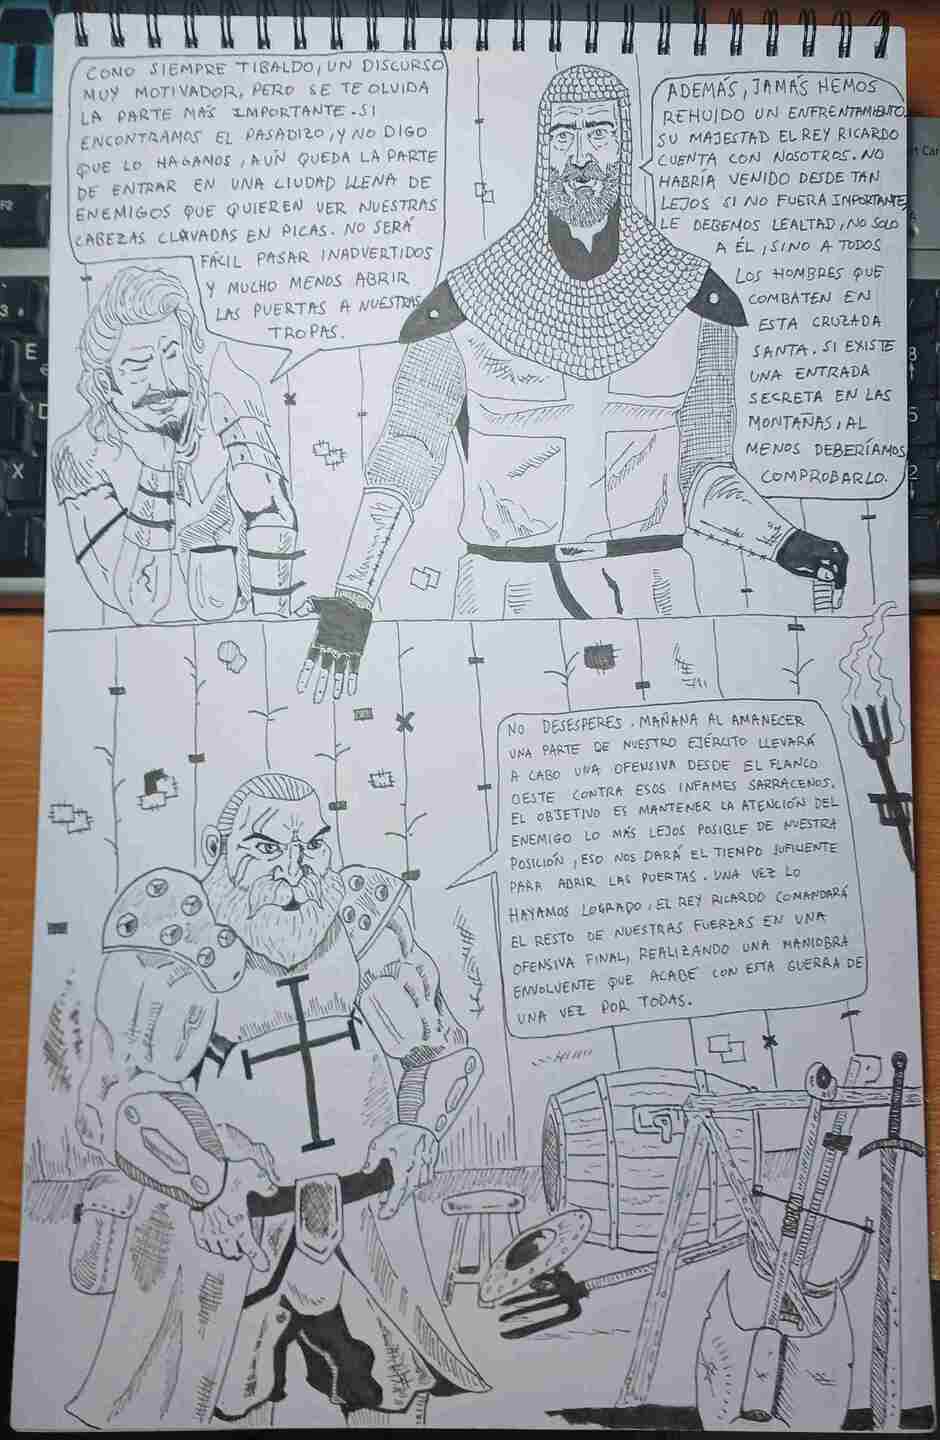 COMO SIEMPRE TIBALDO, UN DISCURSO
MUY MOTIVADOR, PERO SE TE OLVIDA
LA PARTE MÁS IMPORTANTE. SI
ENCONTRAMOS EL PASADIZO, Y NO DIGO
QUE LO HAGAMOS, AÚN QUEDA LA PARTE
DE ENTRAR EN UNA CIUDAD LLENA DE
ENEMIGOS QUE QUIEREN VER NUESTRAS
CABEZAS CLAVADAS EN PICAS. NO SERÁ
FÁCIL PASAR INADVERTIDOS
Y MUCHO MENOS ABRIR
LAS PUERTAS A NUESTRAS
TROPAS.
ADEMÁS, JAMÁS HEMOS
REHUIDO UN ENFRENTAMIENTO.
SU MAJESTAD EL REY RICARDO
CUENTA CON NOSOTROS. NO
HABRÍA VENIDO DESDE TAN
LEJOS SI NO FUERA IMPORTANTE,
LE DEBEMOS LEALTAD, NO SOLO
A ÉL, SINO A TODOS
LOS HOMBRES QUE
COMBATEN EN
ESTA CRUZADA
SANTA. SI EXISTE
UNA ENTRADA
SECRETA EN LAS
MONTAÑAS, AL
MENOS DEBERÍAMOS
COMPROBARLO.
NO DESESPERES. MAÑANA AL AMANECER
UNA PARTE DE NUESTRO EJÉRCITO LLEVARÁ
A CABO UNA OFENSIVA DESDE EL FLANCO
OESTE CONTRA ESOS INFAMES SARRACENOS.
EL OBJETIVO ES MANTENER LA ATENCIÓN DEL
ENEMIGO LO MÁS LEJOS POSIBLE DE NUESTRA
POSICIÓN, ESO NOS DARÁ EL TIEMPO SUFICIENTE
PARA ABRIR LAS PUERTAS. UNA VEZ LO
HAYAMOS LOGRADO, EL REY RICARDO COMANDARÁ
EL RESTO DE NUESTRAS FUERZAS EN UNA
OFENSIVA FINAL, REALIZANDO UNA MANIOBRA
ENVOLVENTE QUE ACABE CON ESTA GUERRA DE
UNA VEZ POR TODAS.
F2
3
E
D
X